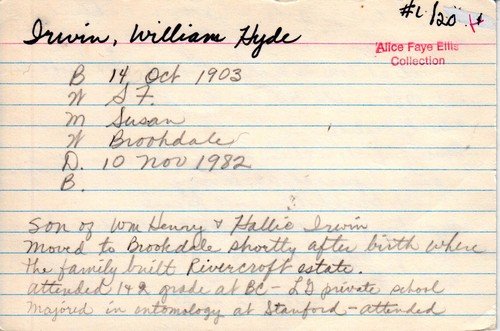 #1/20
Irwin, William Hyde
Alice Faye Ellis
Collection
B 14 Oct 1903
W S F.
M Susan
W Brookdale
D. 10 Nov 1982
B.
?
Son of Wm Henry & Hallie Irwin
Moved to Brookdale shortly after birth where
the family built Rivercroft estate.
attended 1 & 2 grade at BC - LD private school
Majored in entomology at Stanford - attended